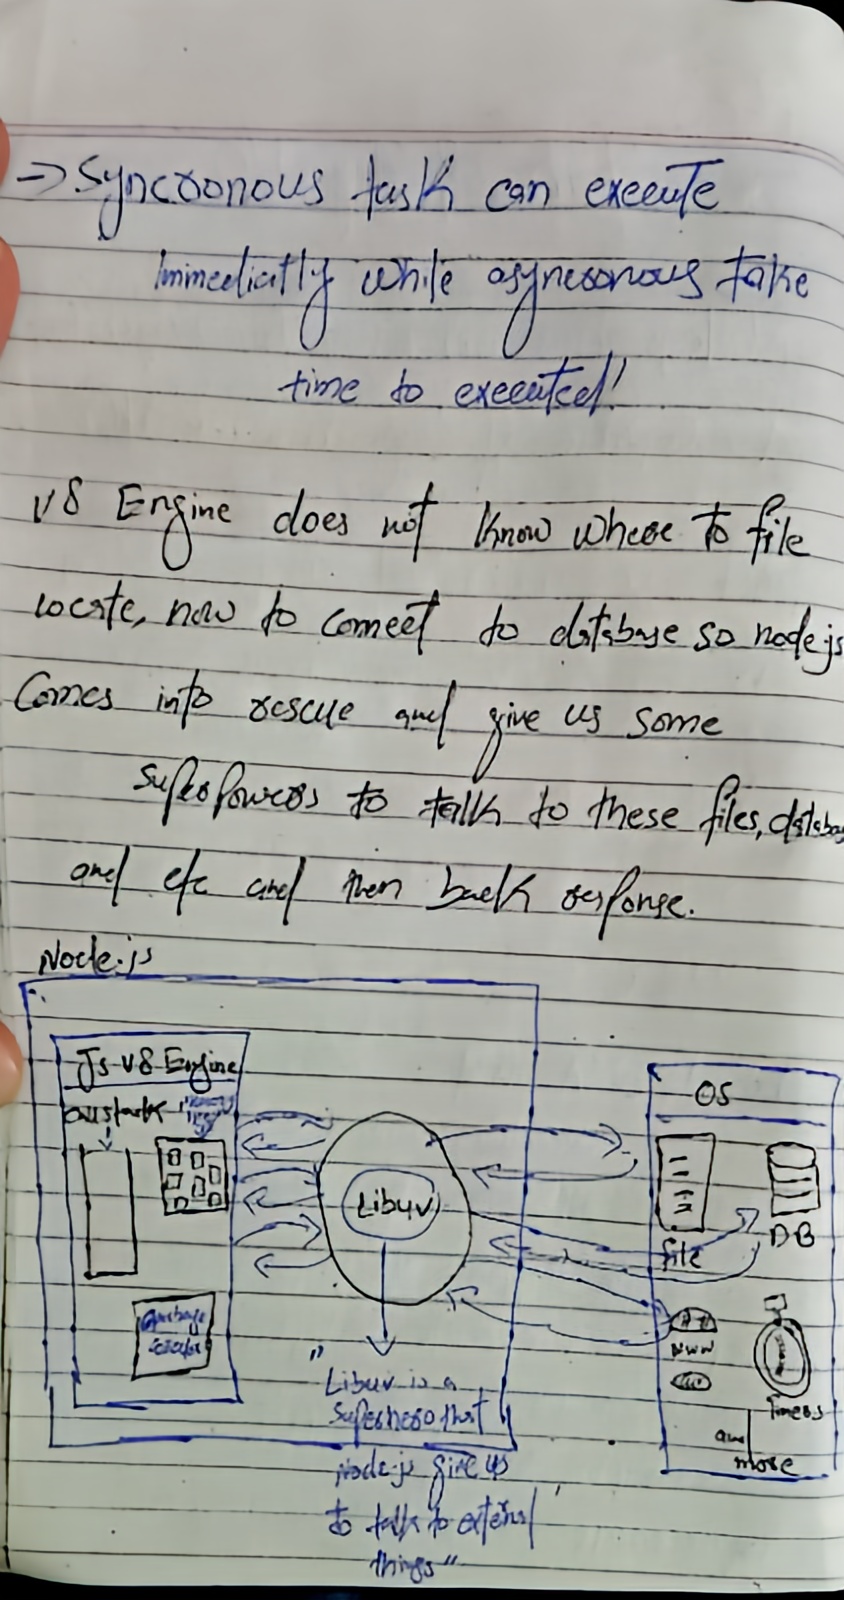 → Syncronous task can execute
Immediatly while asyncronous take
time to executed!
V8 Engine does not know where to file
locate, how to conneet to database so node js
Comes into rescue and give us some
superpowers to talk to these files, databas
and etc and then back response.
Node.js
Js V8 Engine
callstack
Garbage
collector
Libuv
"Libuv is a
Superhero that
Node.js give us
to talk to external
things"
OS
file
DB
WWW
Timers
and
more